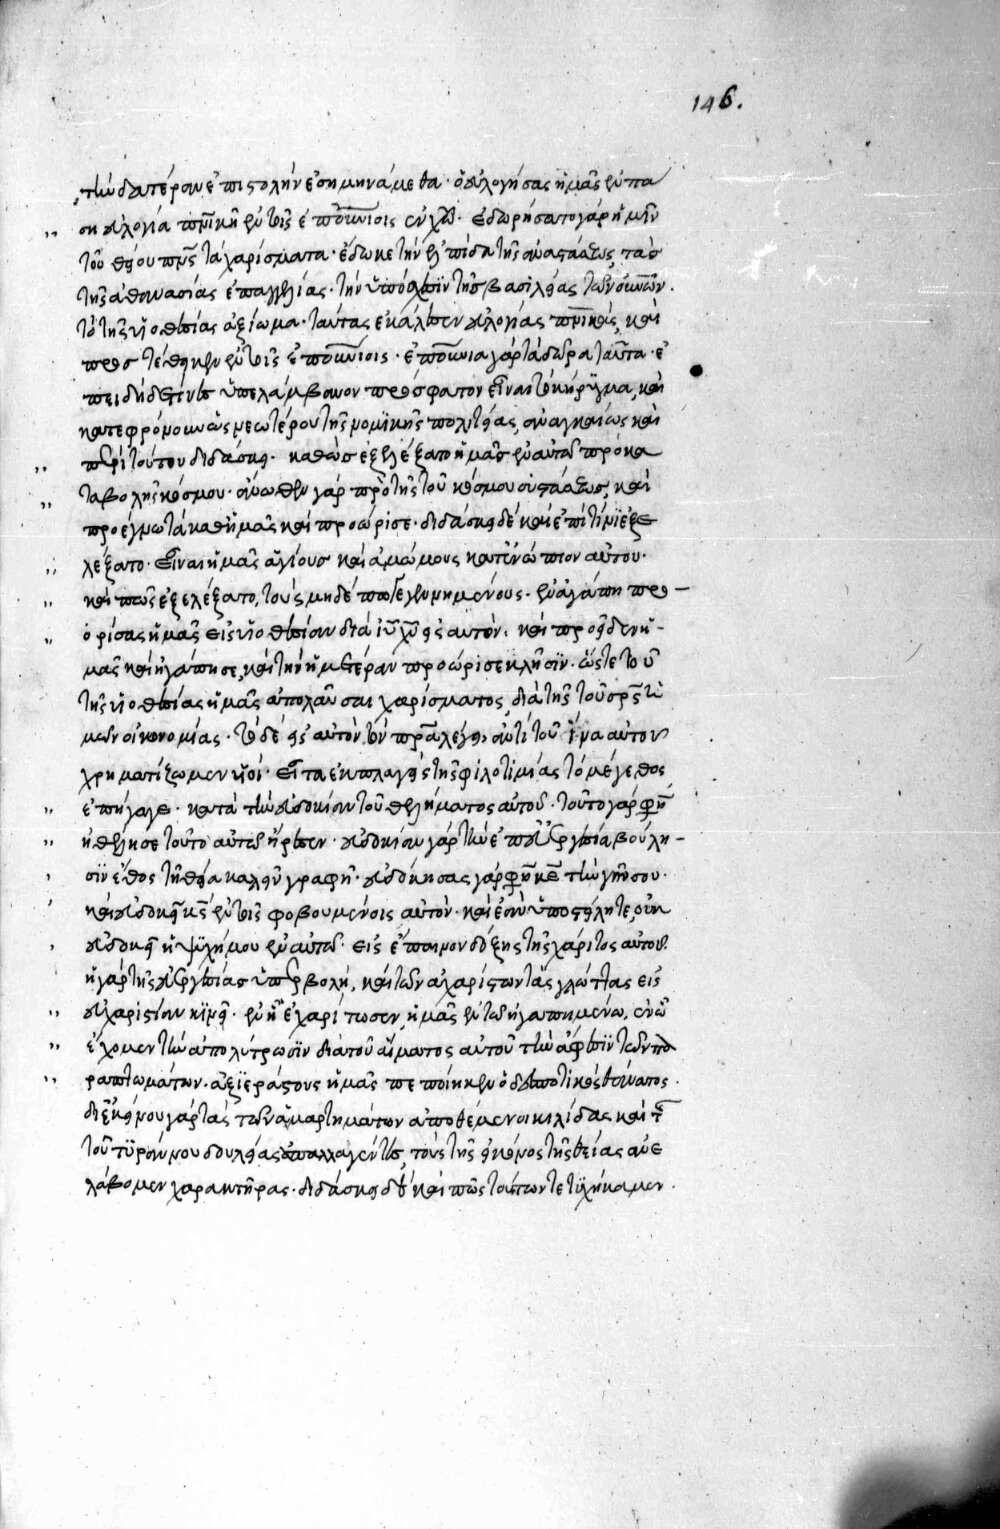 146.
τὴν δευτέραν ἐπιστολὴν ἐσημηνάμεθα· ὁ εὐλογήσας ἡμᾶς ἐν πα
ση εὐλογία πνικῆ ἐν τοῖς ἐπουνίοις ἐν χῶ· ἐδωρήσατο γὰρ ἡμῖν
τοῦ θείου πνς τὰ χαρίσματα· ἔδωκε τὴν ἐλπίδα τῆς ἀναστάσεως, τὰς
τῆς ἀθανασίας ἐπαγγελίας· τὴν ὑπόσχεσιν τῆς βασιλείας τῶν οὐνῶν.
τὸ τῆς υἱοθεσίας ἀξίωμα· ταύτας ἐκάλεσεν εὐλογίας πνικάς, καὶ
προστέθηκεν ἐν τοῖς ἐπουνίοις· ἐπουνια γὰρ τὰ δῶρα ταῦτα· ἐ
πειδὴ δέ τινες ὑπελάμβανον πρόσφατον εἶναι τὸ κήρυγμα, καὶ
κατεφρόνουν ὡς νεωτέρου τῆς νομικῆς πολιτείας, ἀναγκαίως καὶ
περὶ τούτου διδάσκει· καθὼς ἐξελέξατο ἡμᾶς ἐν αὐτῶ πρὸ κα
ταβολῆς κόσμου· ἄνωθεν γὰρ πρὸ τῆς τοῦ κόσμου συστάσεως, καὶ
προέγνω τὰ καθ' ἡμᾶς καὶ προώρισε· διδάσκει δὲ καὶ ἐπὶ τίνι ἐξε
λέξατο· εἶναι ἡμᾶς ἁγίους καὶ ἀμώμους κατενώπιον αὐτοῦ·
καὶ πῶς ἐξελέξατο, τοὺς μηδέπω γεγενημένους· ἐν ἀγάπη προ
ορίσας ἡμᾶς εἰς υἱοθεσίαν διὰ ιυ χυ εἰς αὐτόν· καὶ προεῖδεν ἡ
μᾶς καὶ ἠγάπησε, καὶ τὴν ἡμετέραν προώρισε κλῆσιν· ὥστε τοῦ
τῆς υἱοθεσίας ἡμᾶς ἀπολαῦσαι χαρίσματος, διὰ τῆς τοῦ σρς
οἰκονομίας· τὸ δὲ εἰς αὐτὸν τὸν πρα λέγει, ἀντὶ τοῦ ἵνα αὐτοῦ
χρηματίζωμεν υἱοί· εἶτα ἐκπλαγεὶς τῆς φιλοτιμίας τὸ μέγεθος
ἐπήγαγε· κατὰ τὴν εὐδοκίαν τοῦ θελήματος αὐτοῦ· τοῦτο γάρ φησὶν
ἠθέλησε τοῦτο αὐτῶ ἤρεσεν· εὐδοκίαν γὰρ τὴν ἐπ' εὐεργεσία βούλη
σιν ἔθος τῆ θεία καλεῖν γραφῆ· εὐδόκησας γάρ φησὶ κε τὴν γῆν σου·
καὶ εὐδοκεῖ κς ἐν τοῖς φοβουμένοις αὐτόν· καὶ ἐὰν ὑποστείληται, οὐκ
εὐδοκεῖ ἡ ψυχή μου ἐν αὐτῶ· εἰς ἔπαινον δόξης τῆς χάριτος αὐτοῦ·
ἡ γὰρ τῆς εὐεργεσίας ὑπερβολή, καὶ τῶν ἀχαρίστων τὰς γλώττας εἰς
εὐχαριστίαν κινεῖ· ἐν ἧ ἐχαρίτωσεν ἡμᾶς ἐν τῶ ἠγαπημένω, ἐν ὧ
ἔχομεν τὴν ἀπολύτρωσιν διὰ τοῦ αἵματος αὐτοῦ τὴν ἄφεσιν τῶν πα
ραπτωμάτων· ἀξιεράστους ἡμᾶς πεποίηκεν ὁ δεσποτικὸς θάνατος·
δι' ἐκείνου γὰρ τὰς τῶν ἁμαρτημάτων ἀποθέμενοι κηλίδας καὶ τῆς
τοῦ τυράννου δουλείας ἀπαλλαγέντες, τοὺς τῆς εἰκόνος τῆς θείας ἀνε
λάβομεν χαρακτῆρας· διδάσκει δὲ καὶ πῶς τούτων τετυχήκαμεν·